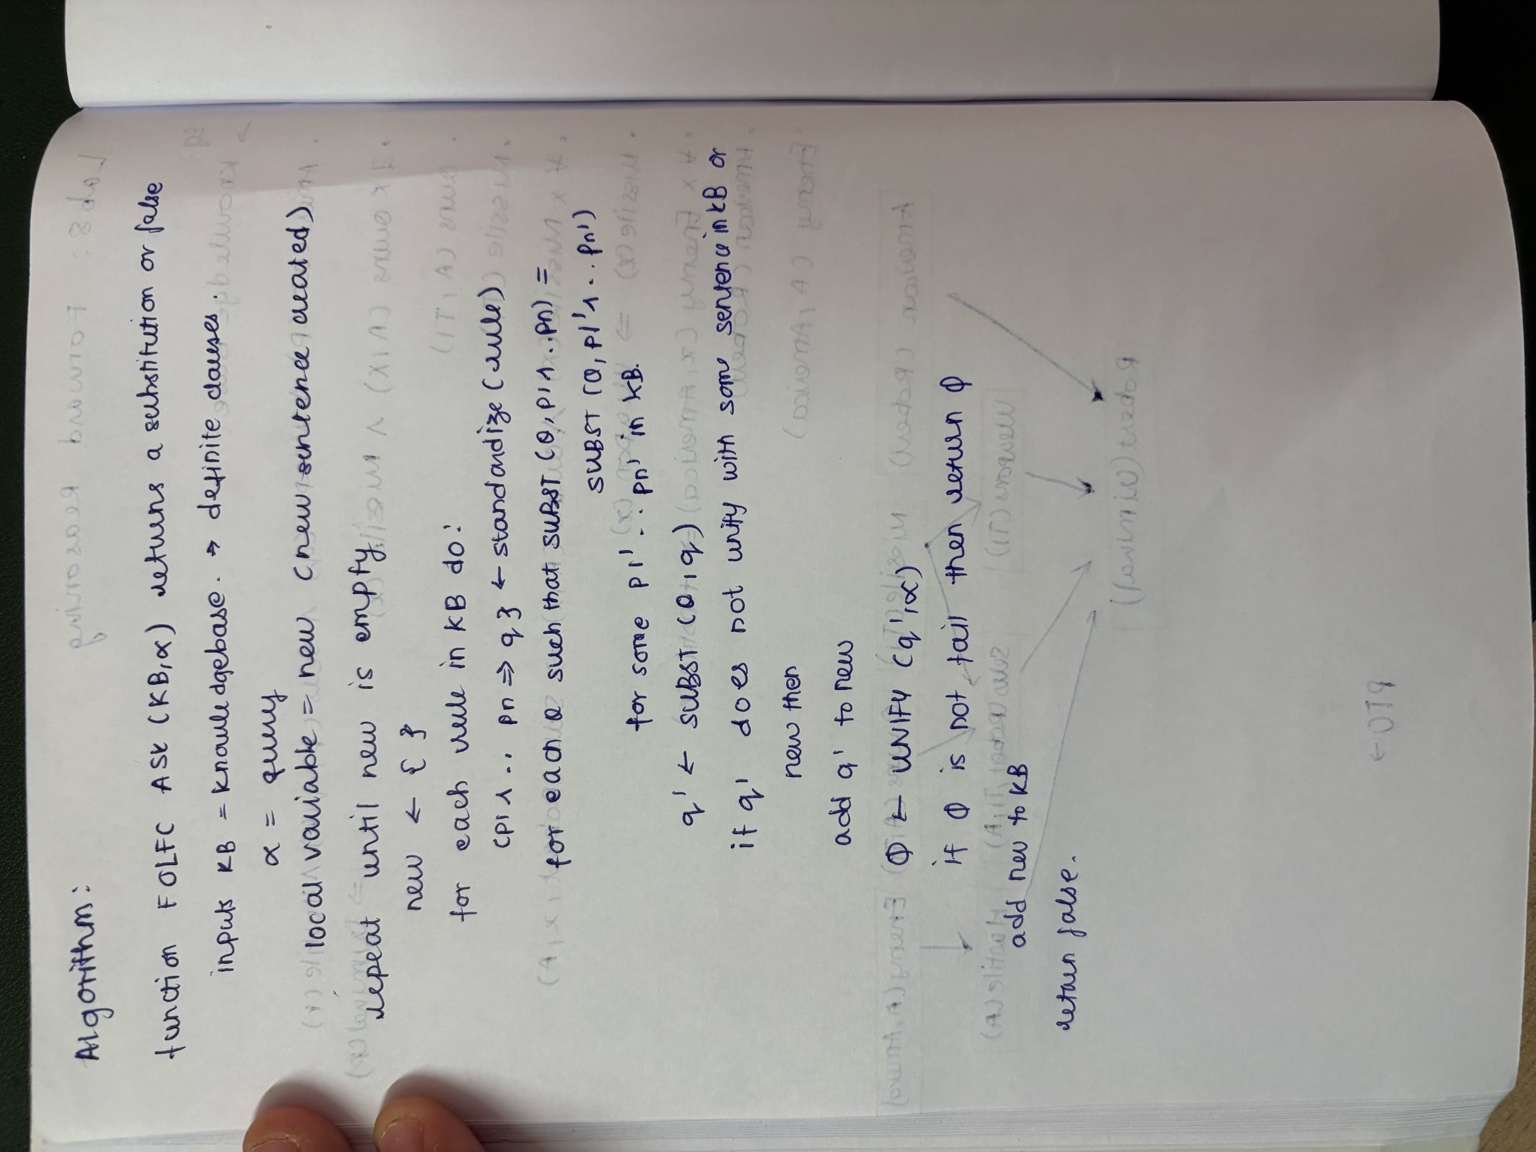 Algorithm:
function FOLFC ASK (KB,α) returns a substitution or false
inputs KB = knowledgebase. → definite clauses.
α = query
local variable = new (new sentence created)
repeat until new is empty
new ← { }
for each rule in KB do:
(p1 ∧ .. pn ⇒ q) ← standardize (rule)
for each θ such that SUBST (θ, p1 ∧ .. pn) =
SUBST (θ, p1' ∧ .. pn')
for some p1' .. pn' in KB.
q' ← SUBST (θ, q)
if q' does not unify with some sentence in KB or
new then
add q' to new
Φ ← UNIFY (q', α)
if Φ is not fail then return Φ
add new to KB
return false.